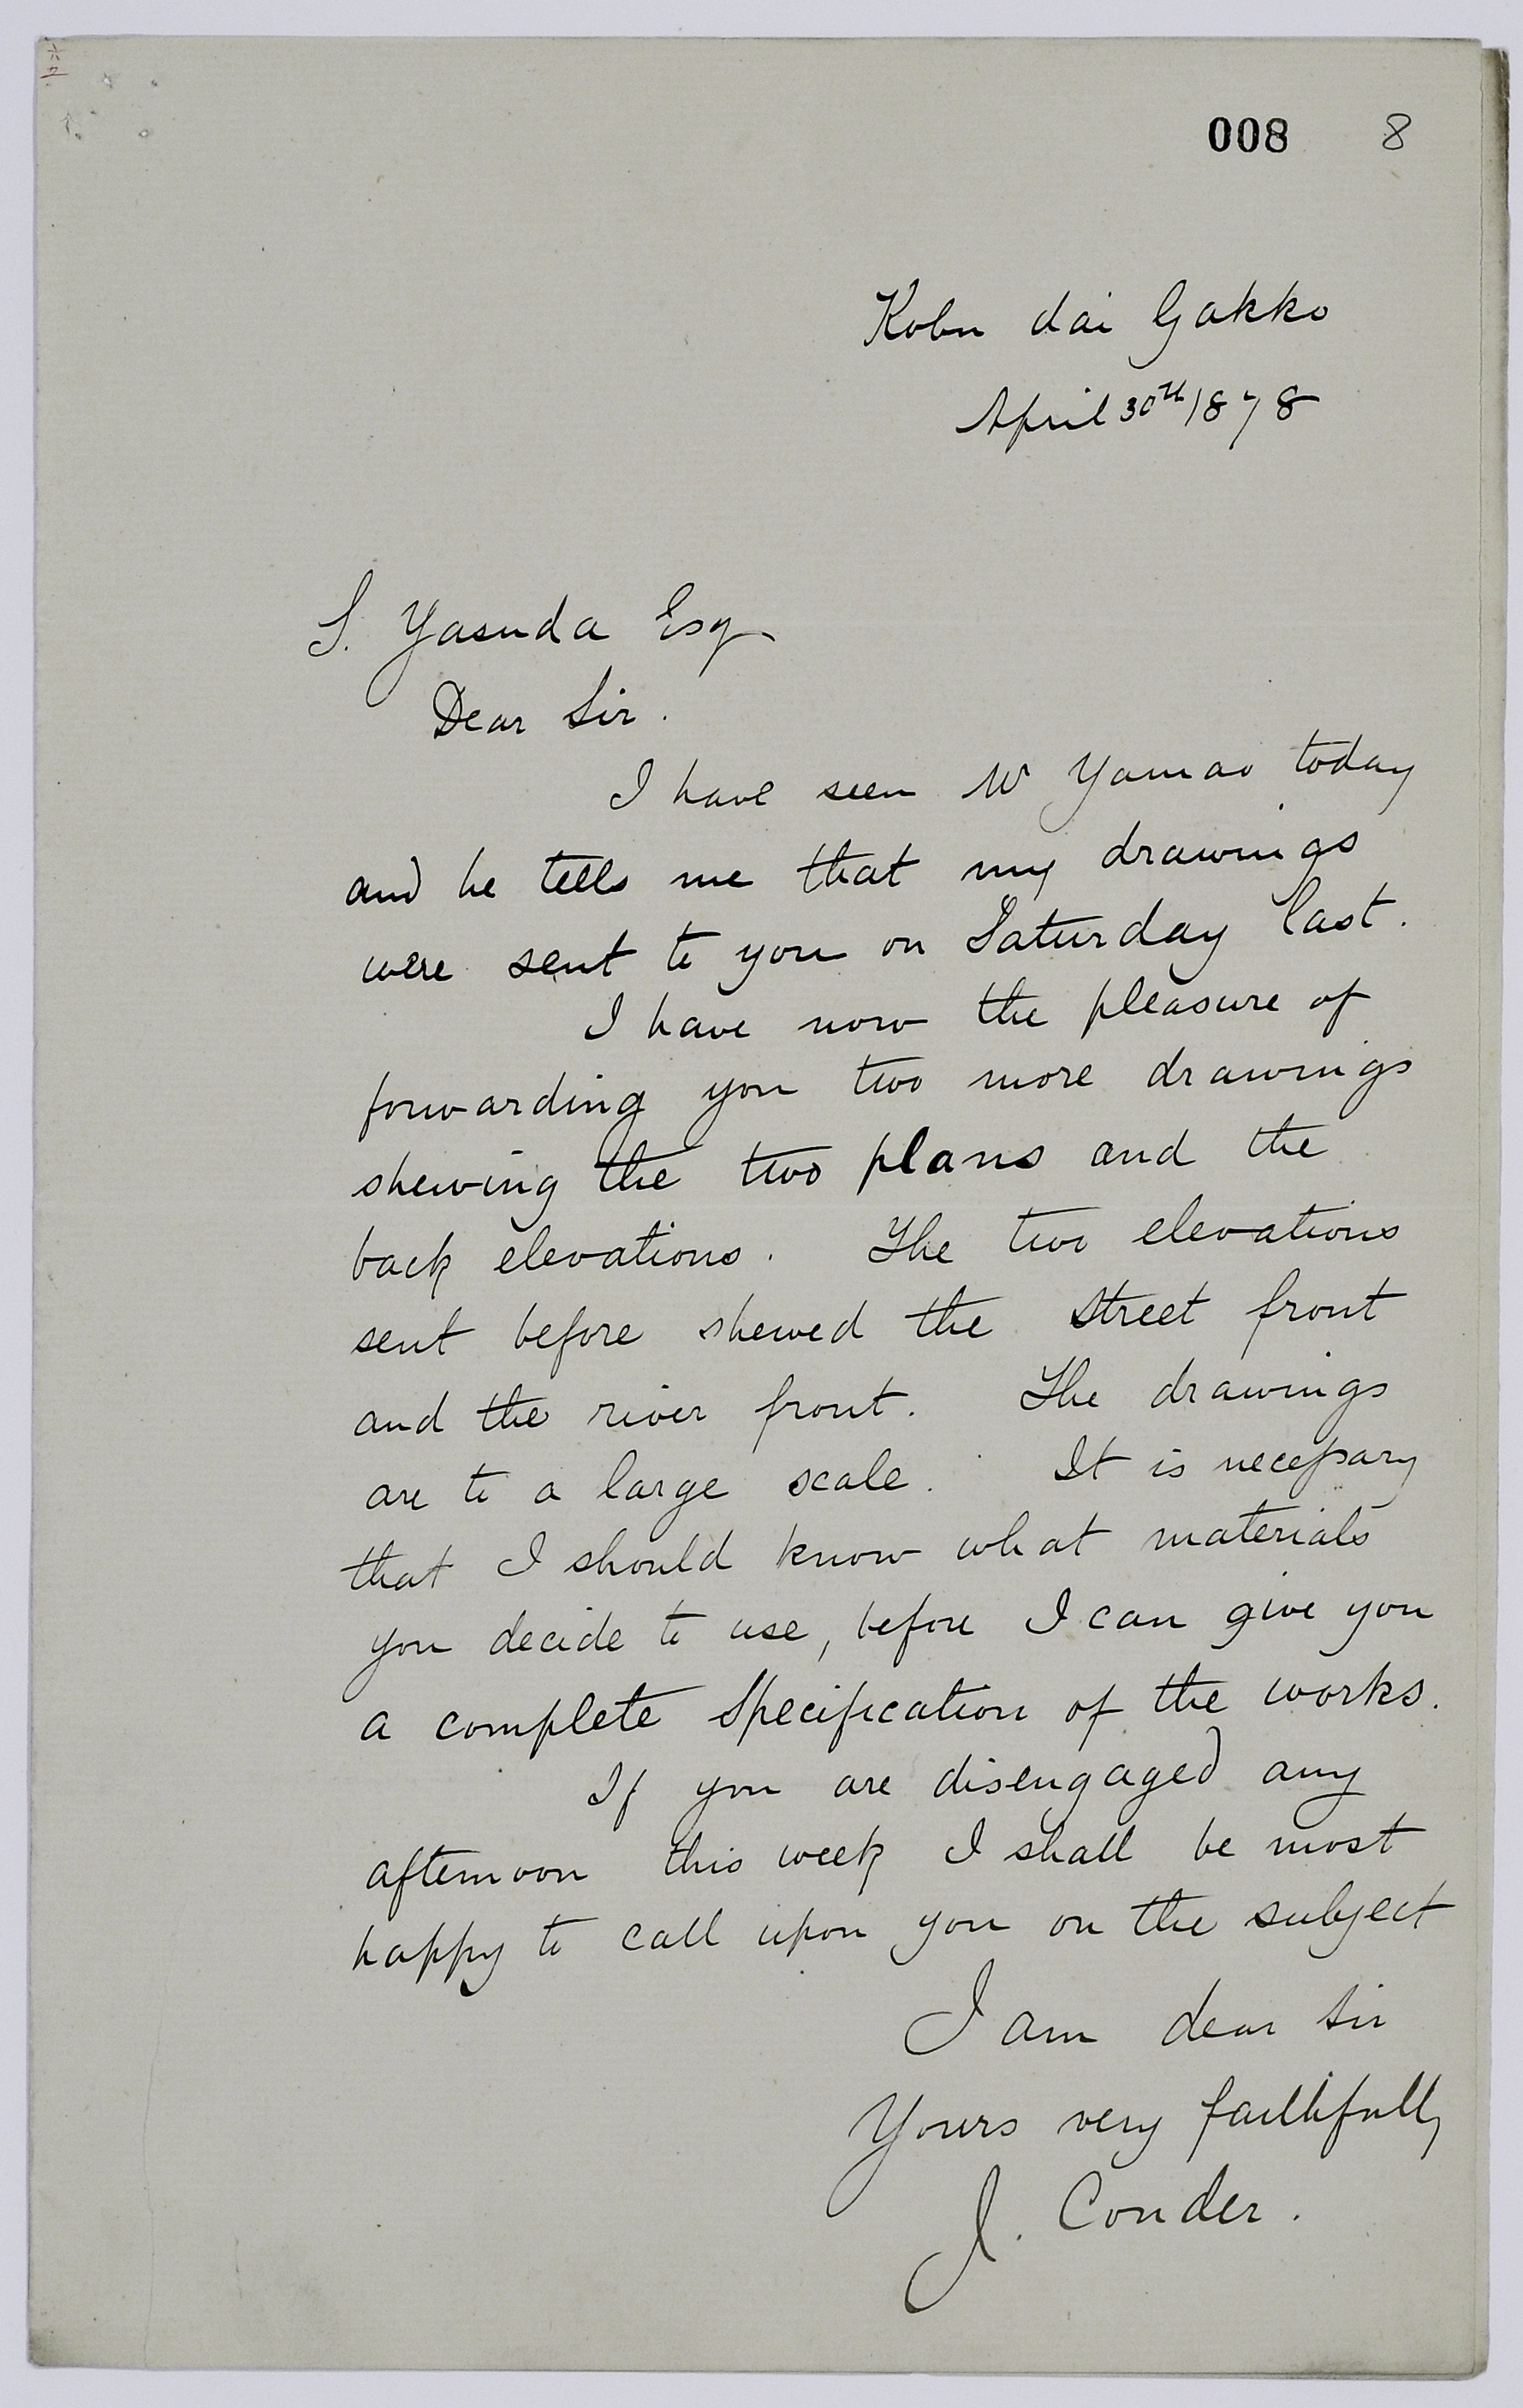 008 8
Kobu dai Gakko
April 30th 1878
S. Yasuda Esq
Dear Sir.
I have seen Mr Yamao today
and he tells me that my drawings
were sent to you on Saturday last.
I have now the pleasure of
forwarding you two more drawings
shewing the two plans and the
back elevations. The two elevations
sent before shewed the street front
and the river front. The drawings
are to a large scale. It is necessary
that I should know what materials
you decide to use, before I can give you
a complete Specification of the works.
If you are disengaged any
afternoon this week I shall be most
happy to call upon you on the subject
I am dear Sir
Yours very faithfully
J. Conder.